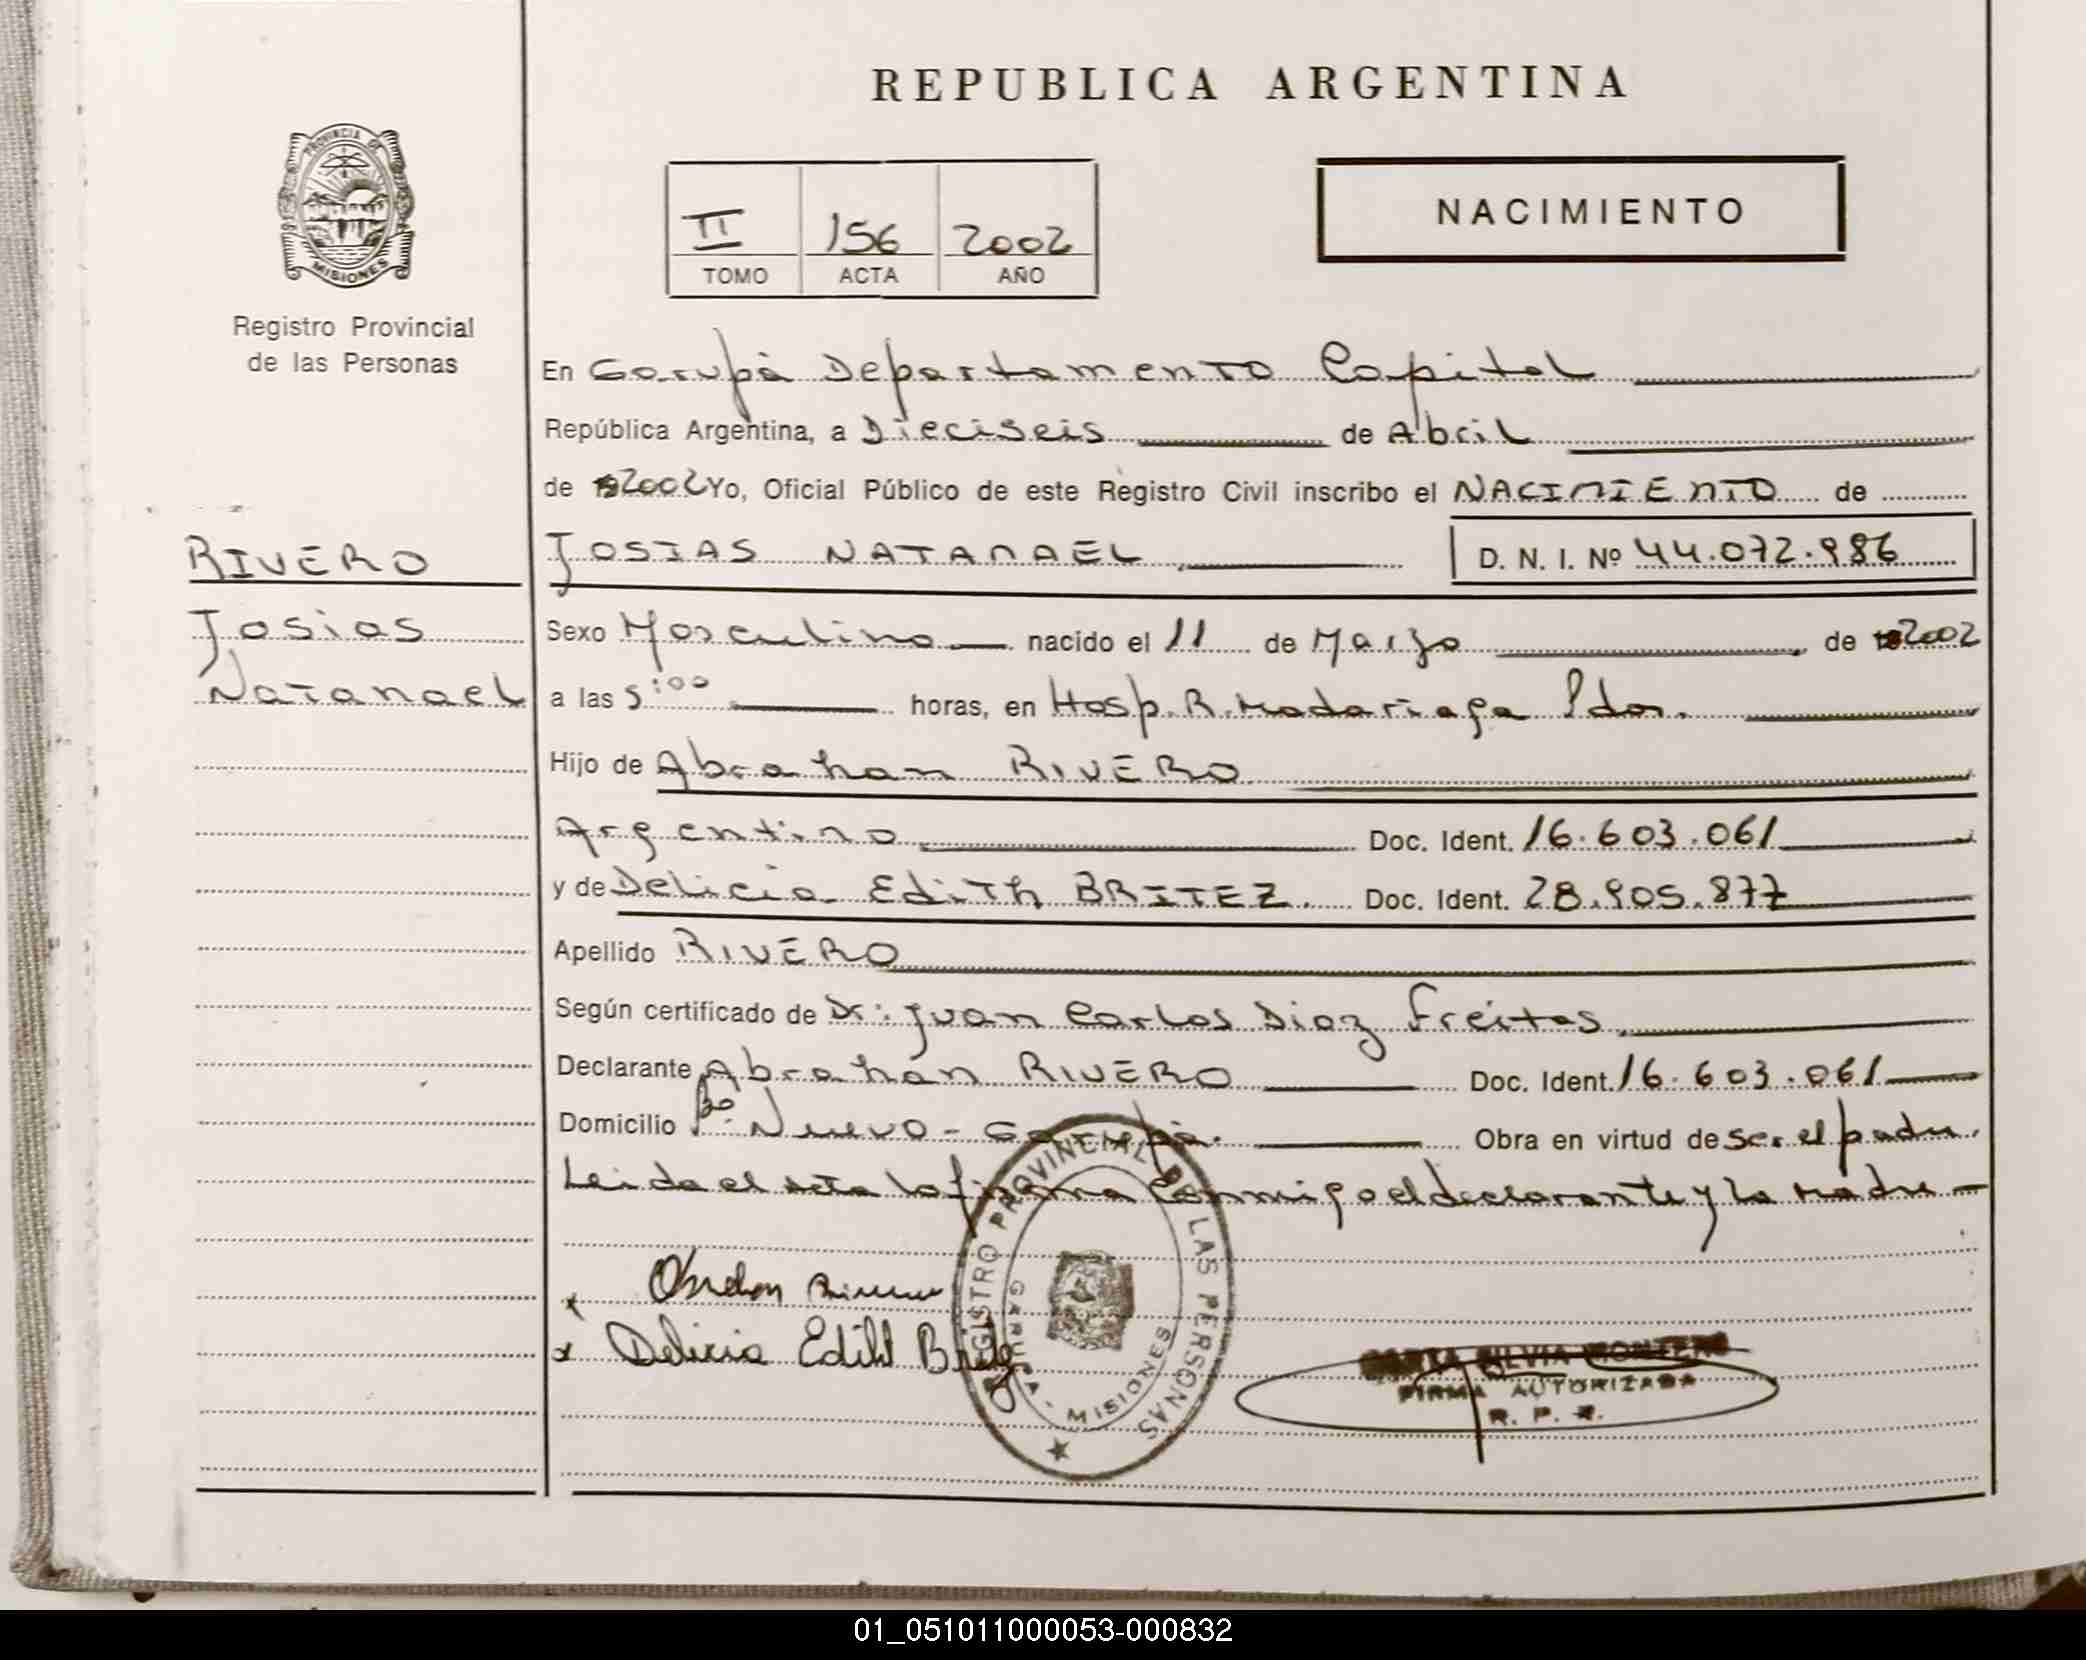 REPUBLICA ARGENTINA
PROVINCIA DE
MISIONES
Registro Provincial
de las Personas
II 156 2002
TOMO ACTA AÑO
NACIMIENTO
En Garupá Departamento Capital
República Argentina, a Dieciseis de Abril
de 2002 Yo, Oficial Público de este Registro Civil inscribo el NACIMIENTO de
RIVERO
Josias
Natanael
JOSIAS NATANAEL D. N. I. Nº 44.072.986
Sexo Masculino nacido el 11 de Marzo de 2002
a las 5:00 horas, en Hosp. R. Madariaga Pdas.
Hijo de Abrahan RIVERO
Argentino Doc. Ident. 16.603.061
y de Delicia Edith BRITEZ Doc. Ident. 28.905.877
Apellido RIVERO
Según certificado de Dr: Juan Carlos Diaz Freitas
Declarante Abrahan RIVERO Doc. Ident. 16.603.061
Domicilio Bº Nuevo - Garupá. Obra en virtud de ser el padre.
Leida el acta la firma conmigo el declarante y la madre
x
x Delicia Edith Britez
REGISTRO PROVINCIAL DE LAS PERSONAS
GARUPA - MISIONES
SILVIA MONTERO
FIRMA AUTORIZADA
R. P.
01_051011000053-000832